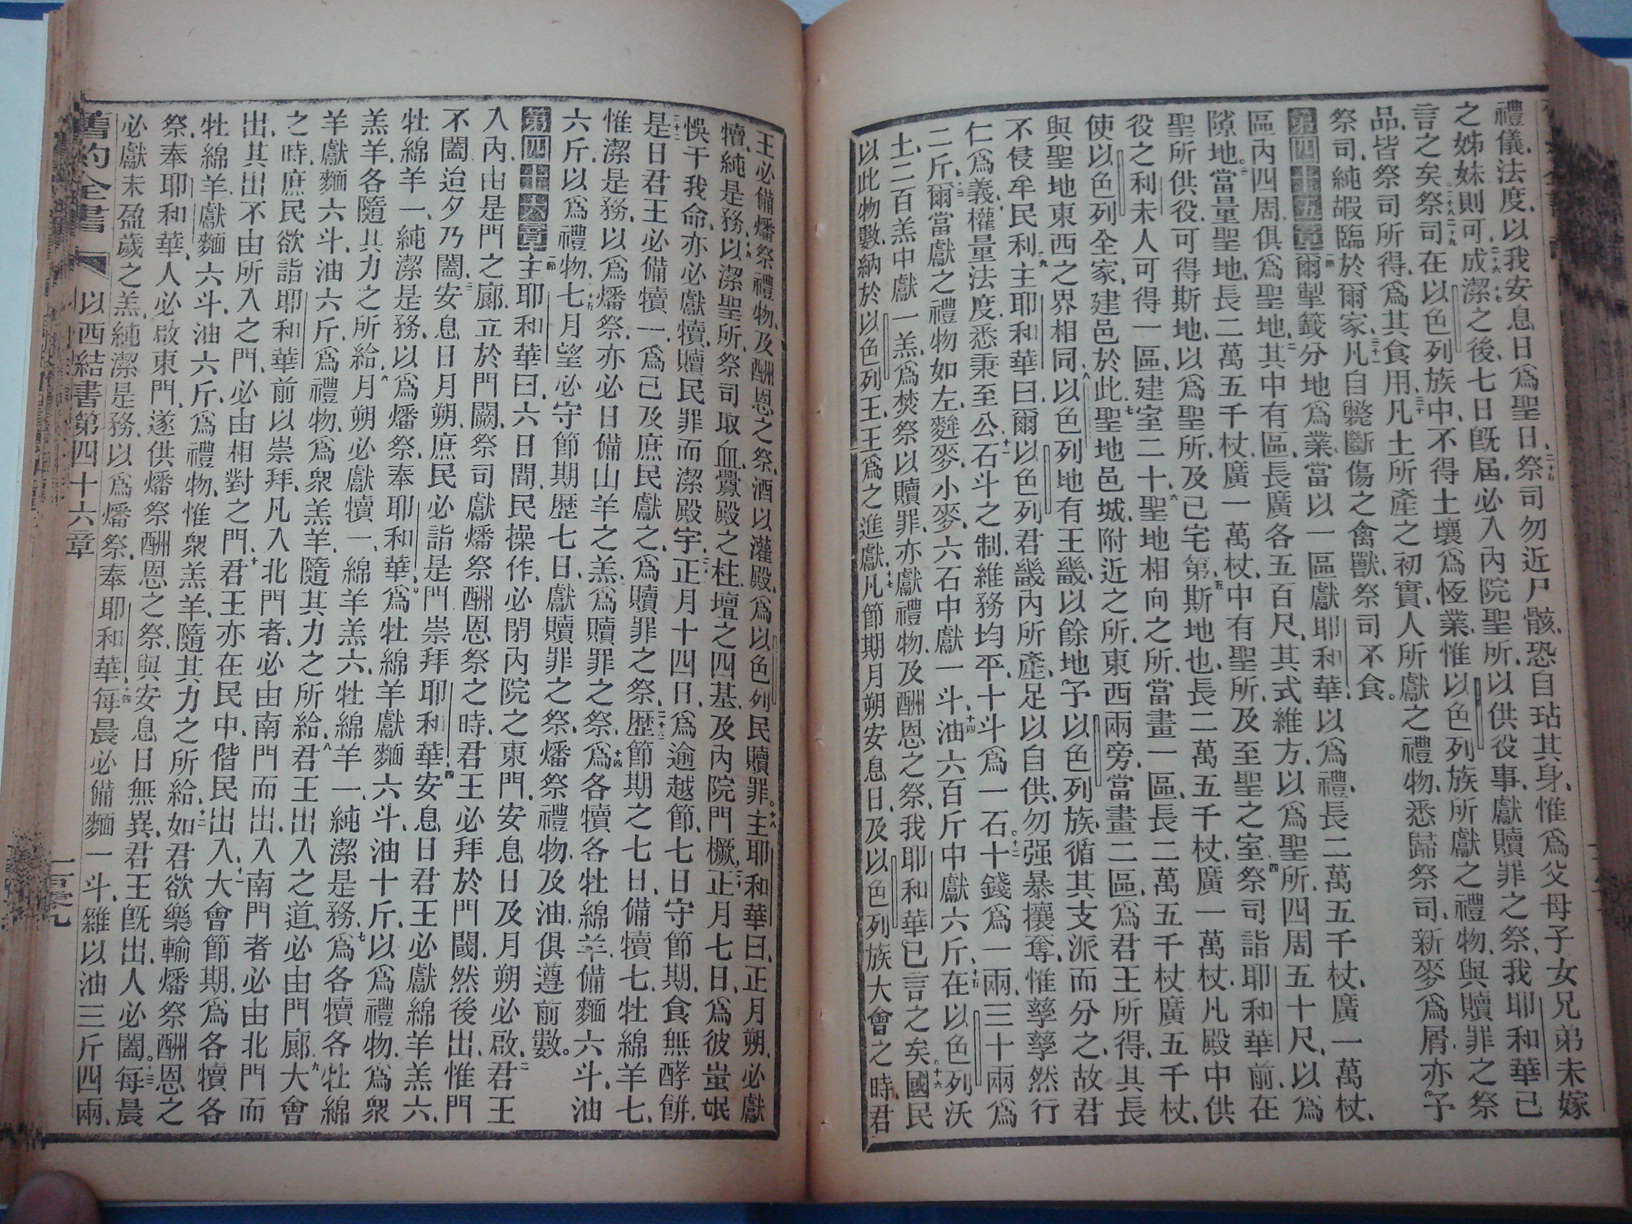 禮儀法度、以我安息日爲聖日、祭司勿近尸骸、恐自玷其身、惟爲父母子女兄弟未嫁
之姊妹則可、成潔之後、七日既屆、必入内院聖所、以供役事、獻贖罪之祭、我耶和華已
言之矣、祭司在以色列族中、不得土壤爲恆業、惟以色列族所獻之禮物、與贖罪之祭
品、皆祭司所得、爲其食用、凡土所產之初實、人所獻之禮物、悉歸祭司、新麥爲屑、亦予
祭司、純嘏臨於爾家、凡自斃斷傷之禽獸、祭司不食。
第四十五章 爾掣籤分地爲業、當以一區獻耶和華、以爲禮、長二萬五千杖、廣一萬杖、
區内四周、俱爲聖地、其中有區、長廣各五百尺、其式維方、以爲聖所、四周五十尺、以爲
隙地、當量聖地、長二萬五千杖、廣一萬杖、中有聖所、及至聖之室、祭司詣耶和華前、在
聖所供役、可得斯地、以爲聖所、及已宅第、斯地也、長二萬五千杖、廣一萬杖、凡殿中供
役之利未人可得一區、建室二十、聖地相向之所、當畫一區、長二萬五千杖、廣五千杖、
使以色列全家建邑於此、聖地邑城、附近之所、東西兩旁、當畫二區、爲君王所得、其長
與聖地東西之界相同、以色列地有王畿、以餘地予以色列族、循其支派而分之、故君
不侵牟民利、主耶和華曰、爾以色列君、畿内所產、足以自供、勿强暴攘奪、惟孳孳然行
仁爲義、權量法度、悉秉至公、石斗之制、維務均平、十斗爲一石、十錢爲一兩、三十兩爲
二斤、爾當獻之禮物如左、麰麥、小麥、六石中獻一斗、油六百斤中獻六斤、在以色列沃
土、二百羔中獻一羔、爲焚祭以贖罪、亦獻禮物、及酬恩之祭、我耶和華已言之矣、國民
以此物數納於以色列王、王爲之進獻、凡節期月朔安息日、及以色列族大會之時、君
王必備燔祭禮物、及酬恩之祭、酒以灌殿、爲以色列民贖罪。主耶和華曰、正月朔、必獻
犢、純是務、以潔聖所、祭司取血、釁殿之柱、壇之四基、及内院門橛、正月七日、爲彼蚩氓
悞干我命、亦必獻犢、贖民罪而潔殿宇、正月十四日、爲逾越節、七日守節期、食無酵餅、
是日君王必備犢一、爲己及庶民獻之、爲贖罪之祭、歷節期之七日、備犢七、牡綿羊七、
惟潔是務、以爲燔祭、亦必日備山羊之羔、爲贖罪之祭、爲各犢各牡綿羊、備麵六斗、油
六斤、以爲禮物、七月望、必守節期、歷七日、獻贖罪之祭、燔祭禮物、及油、俱遵前數。
第四十六章 主耶和華曰、六日間、民操作、必閉内院之東門、安息日及月朔必啟、君王
入内、由是門之廊、立於門閾、祭司獻燔祭酬恩祭之時、君王必拜於門閾、然後出、惟門
不闔、迨夕乃闔、安息日月朔、庶民必詣是門、崇拜耶和華、安息日君王必獻綿羊羔六、
牡綿羊一、純潔是務、以爲燔祭、奉耶和華、爲牡綿羊獻麵六斗、油十斤、以爲禮物、爲衆
羔羊各隨其力之所給、月朔必獻犢一、綿羊羔六、牡綿羊一、純潔是務、爲各犢各牡綿
羊獻麵六斗、油六斤、爲禮物、爲衆羔羊隨其力之所給、君王出入之道、必由門廊、大會
之時、庶民欲詣耶和華前以崇拜、凡入北門者、必由南門而出、入南門者必由北門而
出、其出不由所入之門、必由相對之門、君王亦在民中、偕民出入、大會節期、爲各犢各
牡綿羊、獻麵六斗、油六斤、爲禮物、惟衆羔羊、隨其力之所給、如君欲樂輸燔祭酬恩之
祭、奉耶和華、人必啟東門、遂供燔祭酬恩之祭、與安息日無異、君王既出、人必闔。每晨
必獻未盈歲之羔、純潔是務、以爲燔祭、奉耶和華、每晨必備麵一斗、雜以油三斤四兩、
舊約全書 以西結書第四十六章